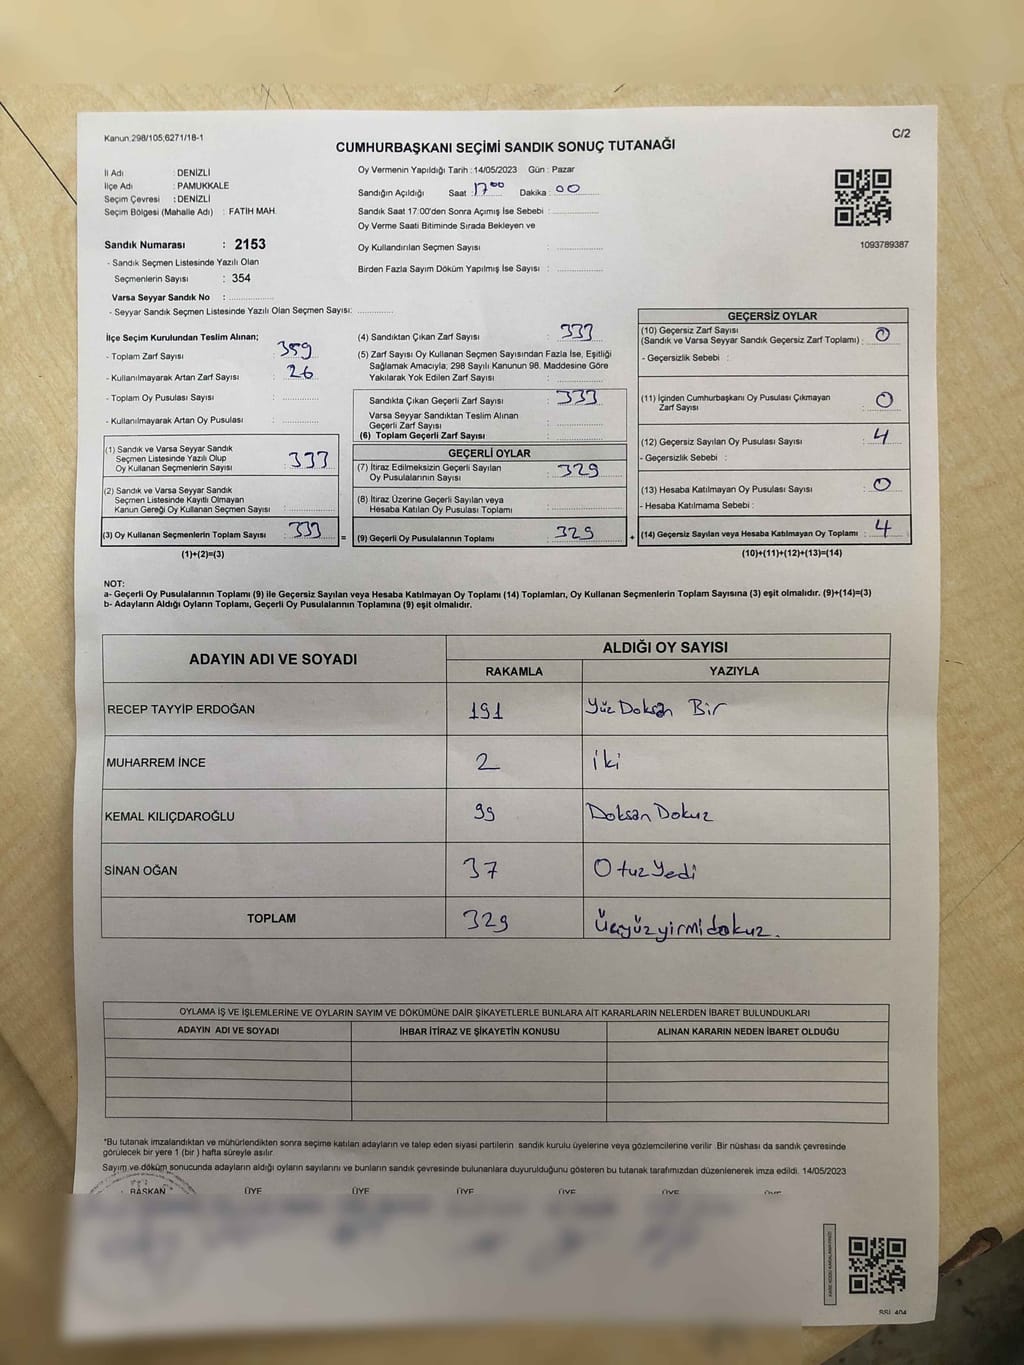 Kanun 298/105,6271/18-1
C/2
CUMHURBAŞKANI SEÇİMİ SANDIK SONUÇ TUTANAĞI
İl Adı : DENİZLİ
İlçe Adı : PAMUKKALE
Seçim Çevresi : DENİZLİ
Seçim Bölgesi (Mahalle Adı) : FATİH MAH.
Sandık Numarası : 2153
- Sandık Seçmen Listesinde Yazılı Olan
Seçmenlerin Sayısı : 354
Varsa Seyyar Sandık No :
- Seyyar Sandık Seçmen Listesinde Yazılı Olan Seçmen Sayısı:
Oy Vermenin Yapıldığı Tarih : 14/05/2023 Gün : Pazar
Sandığın Açıldığı Saat : 17 00 Dakika : 00
Sandık Saat 17:00'den Sonra Açımış İse Sebebi :
Oy Verme Saati Bitiminde Sırada Bekleyen ve
Oy Kullandırılan Seçmen Sayısı :
Birden Fazla Sayım Döküm Yapılmış İse Sayısı :
1093789387
İlçe Seçim Kurulundan Teslim Alınan;
- Toplam Zarf Sayısı : 359
- Kullanılmayarak Artan Zarf Sayısı : 26
- Toplam Oy Pusulası Sayısı :
- Kullanılmayarak Artan Oy Pusulası :
(1) Sandık ve Varsa Seyyar Sandık
Seçmen Listesinde Yazılı Olup
Oy Kullanan Seçmenlerin Sayısı : 333
(2) Sandık ve Varsa Seyyar Sandık
Seçmen Listesinde Kayıtlı Olmayan
Kanun Gereği Oy Kullanan Seçmen Sayısı :
(3) Oy Kullanan Seçmenlerin Toplam Sayısı : 333
(1)+(2)=(3)
(4) Sandıktan Çıkan Zarf Sayısı : 333
(5) Zarf Sayısı Oy Kullanan Seçmen Sayısından Fazla İse, Eşitliği
Sağlamak Amacıyla; 298 Sayılı Kanunun 98. Maddesine Göre
Yakılarak Yok Edilen Zarf Sayısı :
Sandıkta Çıkan Geçerli Zarf Sayısı : 333
Varsa Seyyar Sandıktan Teslim Alınan
Geçerli Zarf Sayısı :
(6) Toplam Geçerli Zarf Sayısı :
GEÇERLİ OYLAR
(7) İtiraz Edilmeksizin Geçerli Sayılan
Oy Pusulalarının Sayısı : 329
(8) İtiraz Üzerine Geçerli Sayılan veya
Hesaba Katılan Oy Pusulası Toplamı :
= (9) Geçerli Oy Pusulalarının Toplamı : 329 +
GEÇERSİZ OYLAR
(10) Geçersiz Zarf Sayısı
(Sandık ve Varsa Seyyar Sandık Geçersiz Zarf Toplamı) : 0
- Geçersizlik Sebebi :
(11) İçinden Cumhurbaşkanı Oy Pusulası Çıkmayan
Zarf Sayısı : 0
(12) Geçersiz Sayılan Oy Pusulası Sayısı : 4
- Geçersizlik Sebebi :
(13) Hesaba Katılmayan Oy Pusulası Sayısı : 0
- Hesaba Katılmama Sebebi :
(14) Geçersiz Sayılan veya Hesaba Katılmayan Oy Toplamı : 4
(10)+(11)+(12)+(13)=(14)
NOT:
a- Geçerli Oy Pusulalarının Toplamı (9) ile Geçersiz Sayılan veya Hesaba Katılmayan Oy Toplamı (14) Toplamları, Oy Kullanan Seçmenlerin Toplam Sayısına (3) eşit olmalıdır. (9)+(14)=(3)
b- Adayların Aldığı Oyların Toplamı, Geçerli Oy Pusulalarının Toplamına (9) eşit olmalıdır.
ADAYIN ADI VE SOYADI
ALDIĞI OY SAYISI
RAKAMLA YAZIYLA
RECEP TAYYİP ERDOĞAN 191 Yüz Doksan Bir
MUHARREM İNCE 2 iki
KEMAL KILIÇDAROĞLU 99 Doksan Dokuz
SİNAN OĞAN 37 Otuz Yedi
TOPLAM 329 Üçyüzyirmidokuz.
OYLAMA İŞ VE İŞLEMLERİNE VE OYLARIN SAYIM VE DÖKÜMÜNE DAİR ŞİKAYETLERLE BUNLARA AİT KARARLARIN NELERDEN İBARET BULUNDUKLARI
ADAYIN ADI VE SOYADI İHBAR İTİRAZ VE ŞİKAYETİN KONUSU ALINAN KARARIN NEDEN İBARET OLDUĞU
*Bu tutanak imzalandıktan ve mühürlendikten sonra seçime katılan adayların ve talep eden siyasi partilerin sandık kurulu üyelerine veya gözlemcilerine verilir. Bir nüshası da sandık çevresinde
görülecek bir yere 1 (bir ) hafta süreyle asılır.
Sayım ve döküm sonucunda adayların aldığı oyların sayılarını ve bunların sandık çevresinde bulunanlara duyurulduğunu gösteren bu tutanak tarafımızdan düzenlenerek imza edildi. 14/05/2023
BAŞKAN ÜYE ÜYE ÜYE ÜYE ÜYE ÜYE